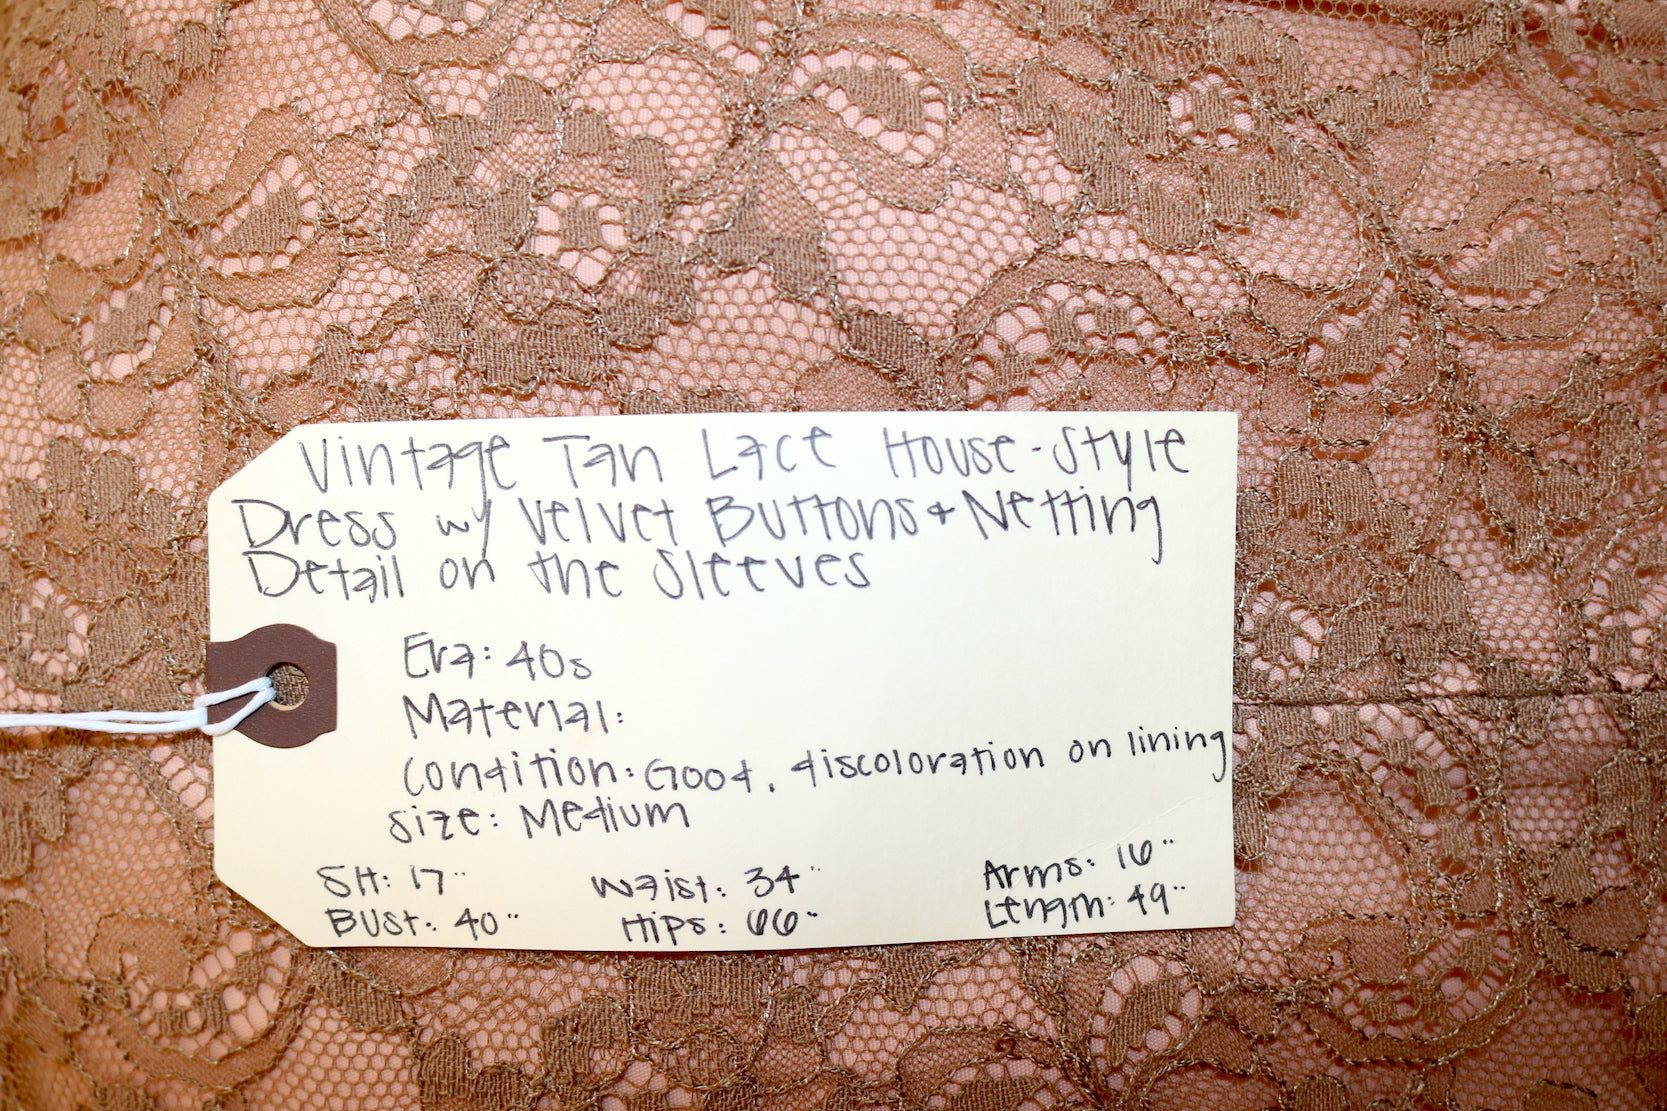 Vintage Tan Lace House-Style
Dress w/ Velvet Buttons + Netting
Detail on the Sleeves
Era: 40s
Material:
Condition: Good, discoloration on lining
Size: Medium
SH: 17" Waist: 34" Arms: 16"
Bust: 40" Hips: 66" Length: 49"